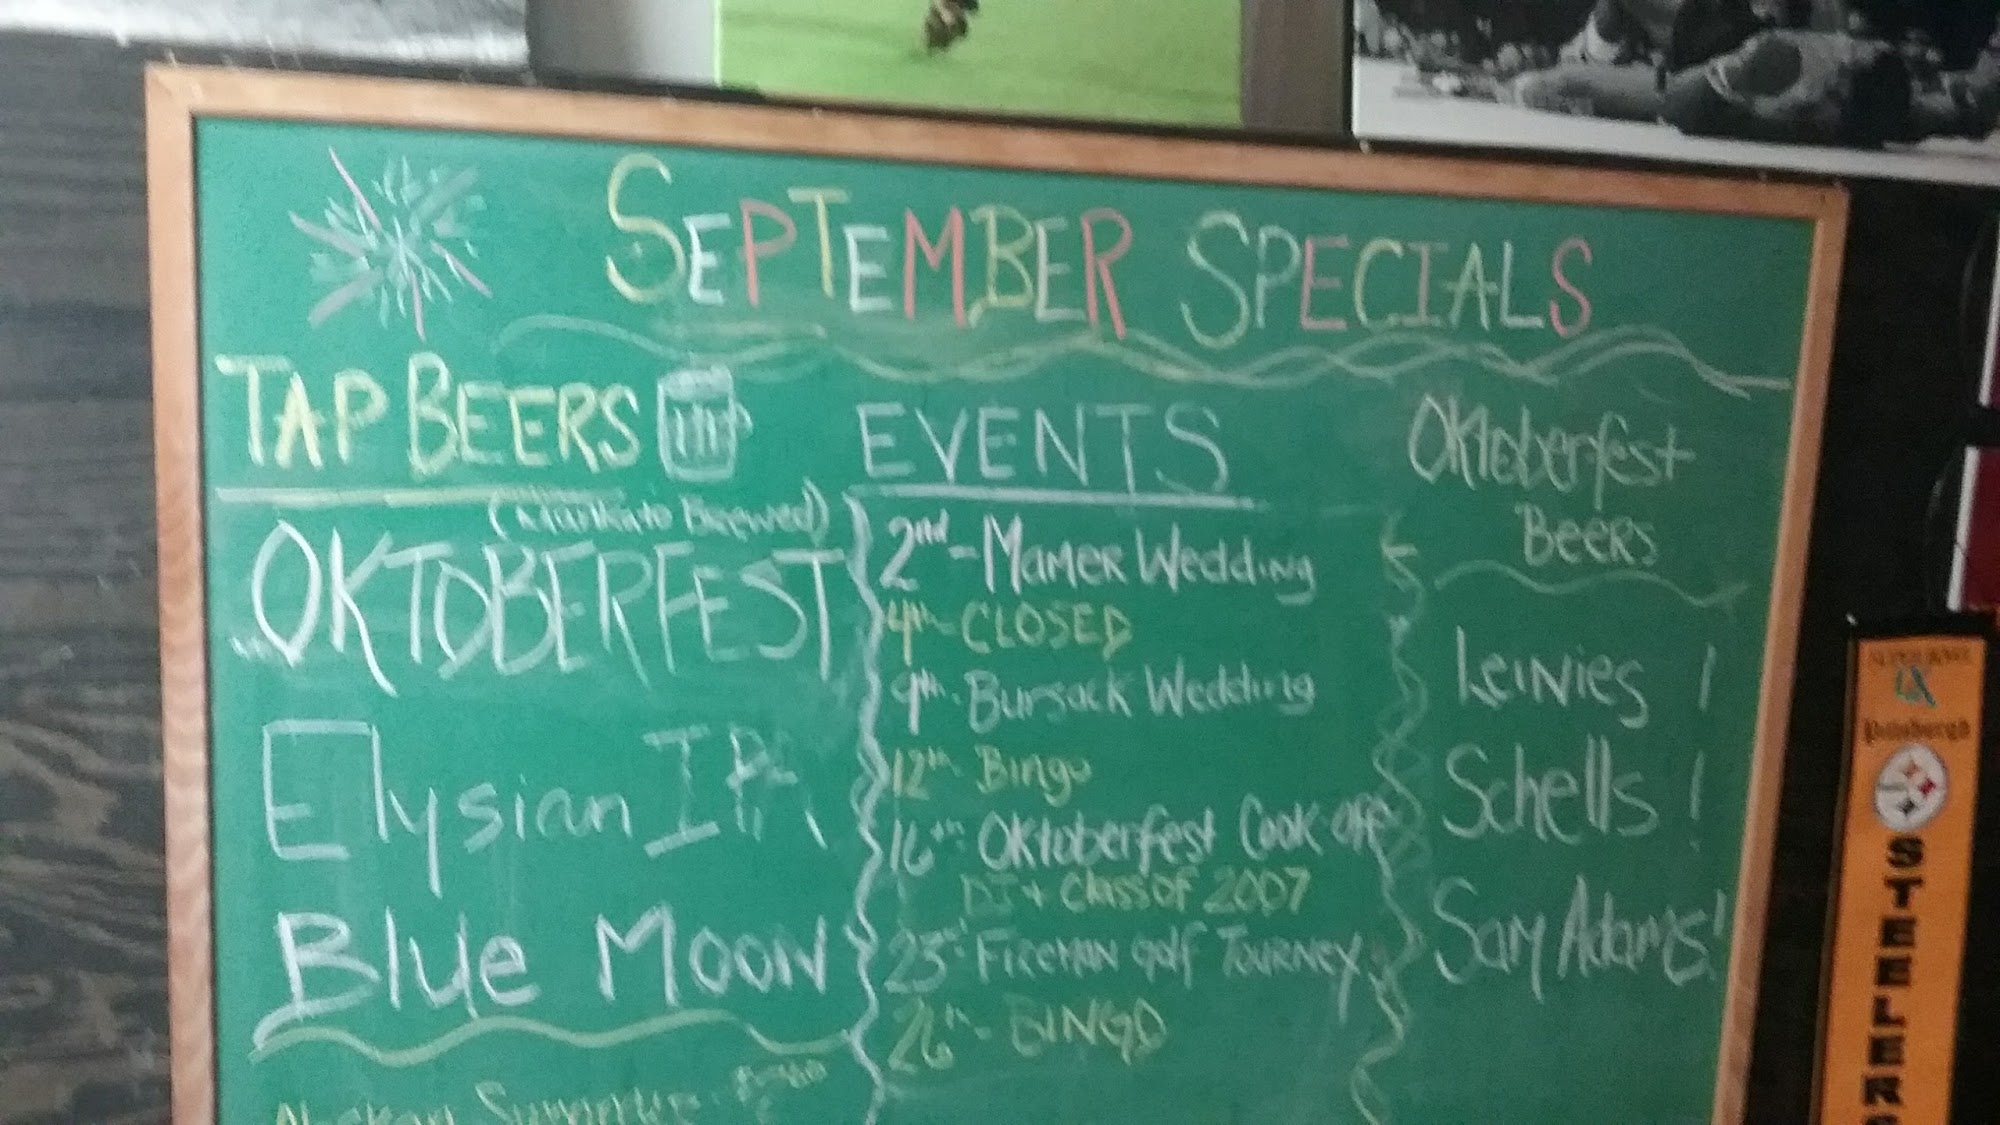 SEPTEMBER SPECIALS
TAP BEERS
(Mankato Brewed)
OKTOBERFEST
Elysian IPA
Blue Moon
EVENTS
2nd - Mamer Wedding
4th - CLOSED
9th - Bursack Wedding
12th - Bingo
16th - Oktoberfest Cook off
DJ + Class of 2007
23rd - Fireman golf Tourney
26th - BINGO
Oktoberfest
Beers
Leinies !
Schells !
Sam Adams!
SUPER BOWL
IX
Pittsburgh
Steelers
STEELERS